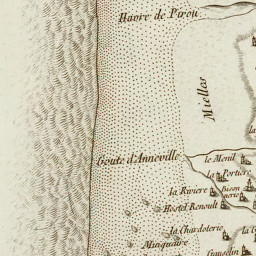 Havre de Pirou
Mielles
Goute d'Anneville
le Menil
la Portiere
la Riviere
Hostel Renoult
la Chardoterie
la G
Minquaire
Gauselin